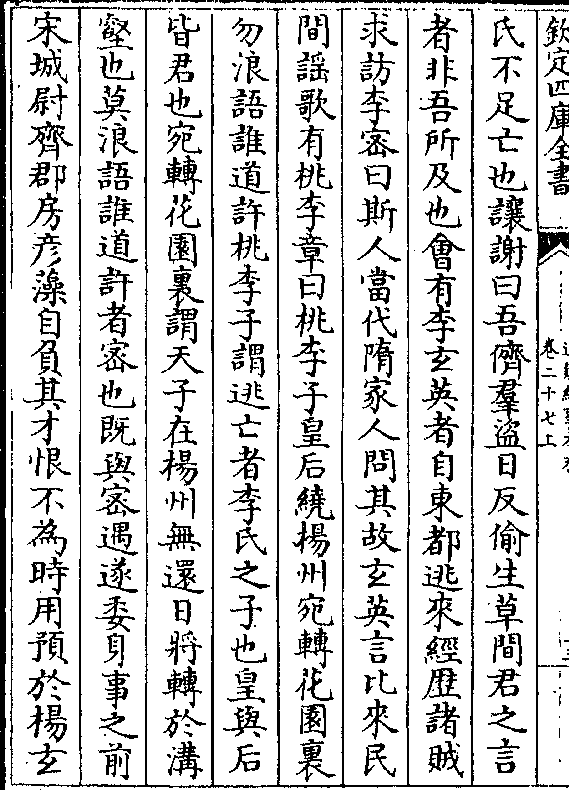 欽定四庫全書
卷二十七上
氏不足亡也讓謝曰吾儕羣盜日夕偷生草間君之言
者非吾所及也會有李玄英者自東都逃來經歴諸賊
求訪李密曰斯人當代隋家人問其故玄英言比來民
間謡歌有桃李章曰桃李子皇后繞楊州宛轉花園裏
勿浪語誰道許桃李子謂逃亡者李氏之子也皇與后
皆君也宛轉花園裏謂天子在楊州無還日將轉於溝
壑也莫浪語誰道許者密也既與密遇遂委身事之前
宋城尉齊郡房彦藻自負其才恨不為時用預於楊玄